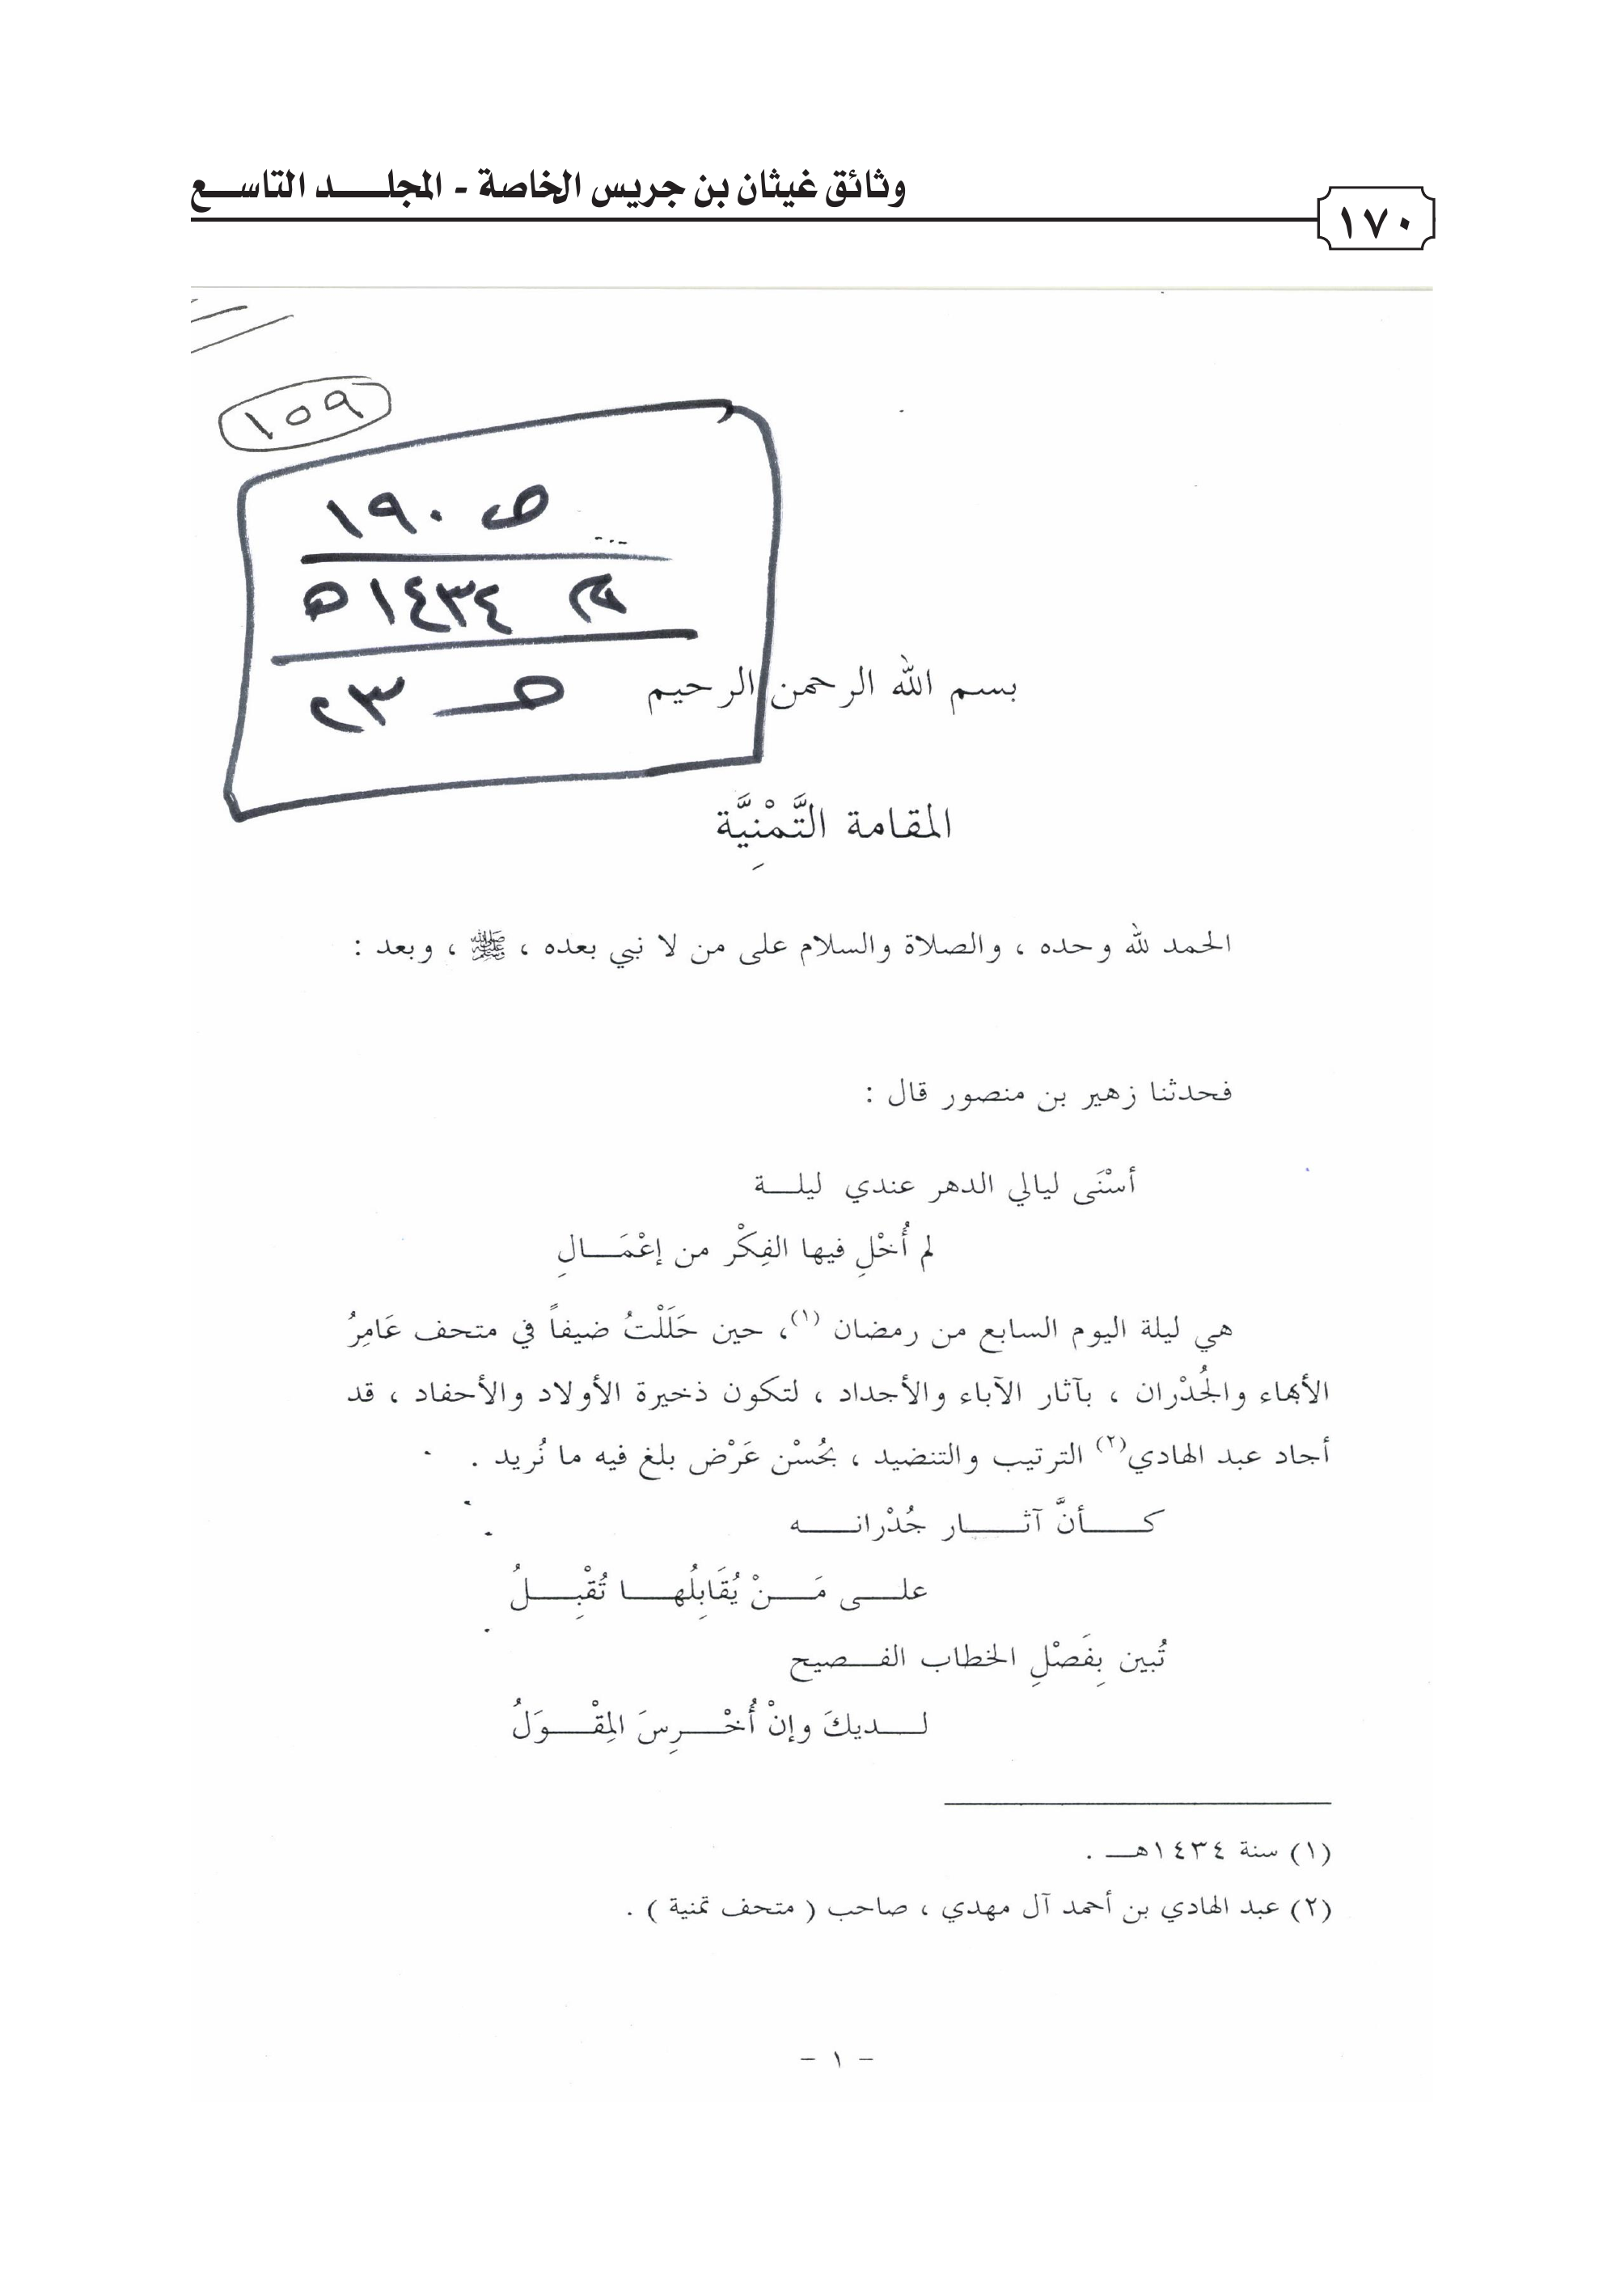 وثائق غيثان بن جريس الخاصة - المجلد التاسع
١٧٠
١٥٩
ص ١٩٠
١٤٣٤ ه
٢٣
بسم الله الرحمن الرحيم
المقامة التَّمْنِيَّة
الحمد لله وحده ، والصلاة والسلام على من لا نبي بعده ، ﷺ ، وبعد :
فحدثنا زهير بن منصور قال :
أسْنَى ليالي الدهر عندي ليلـــة
لم أُخْلِ فيها الفِكْر من إعْمَـــالِ
هي ليلة اليوم السابع من رمضان (١)، حين حَلَلْتُ ضيفاً في متحف عَامِرُ
الأبهاء والجُدْران ، بآثار الآباء والأجداد ، لتكون ذخيرة الأولاد والأحفاد ، قد
أجاد عبد الهادي(٢) الترتيب والتنضيد ، بحُسْن عَرْض بلغ فيه ما نُريد .
كـــأنَّ آثـــار جُدْرانـــه
علـــى مَـــنْ يُقَابِلُهـــا تُقْبِـــلُ
تُبين بِفَصْلِ الخطاب الفـــصيح
لـــديكَ وإنْ أُخْـــرِسَ المِقْـــوَلُ
(١) سنة ١٤٣٤هـ .
(٢) عبد الهادي بن أحمد آل مهدي ، صاحب ( متحف تمنية ) .
- ١ -